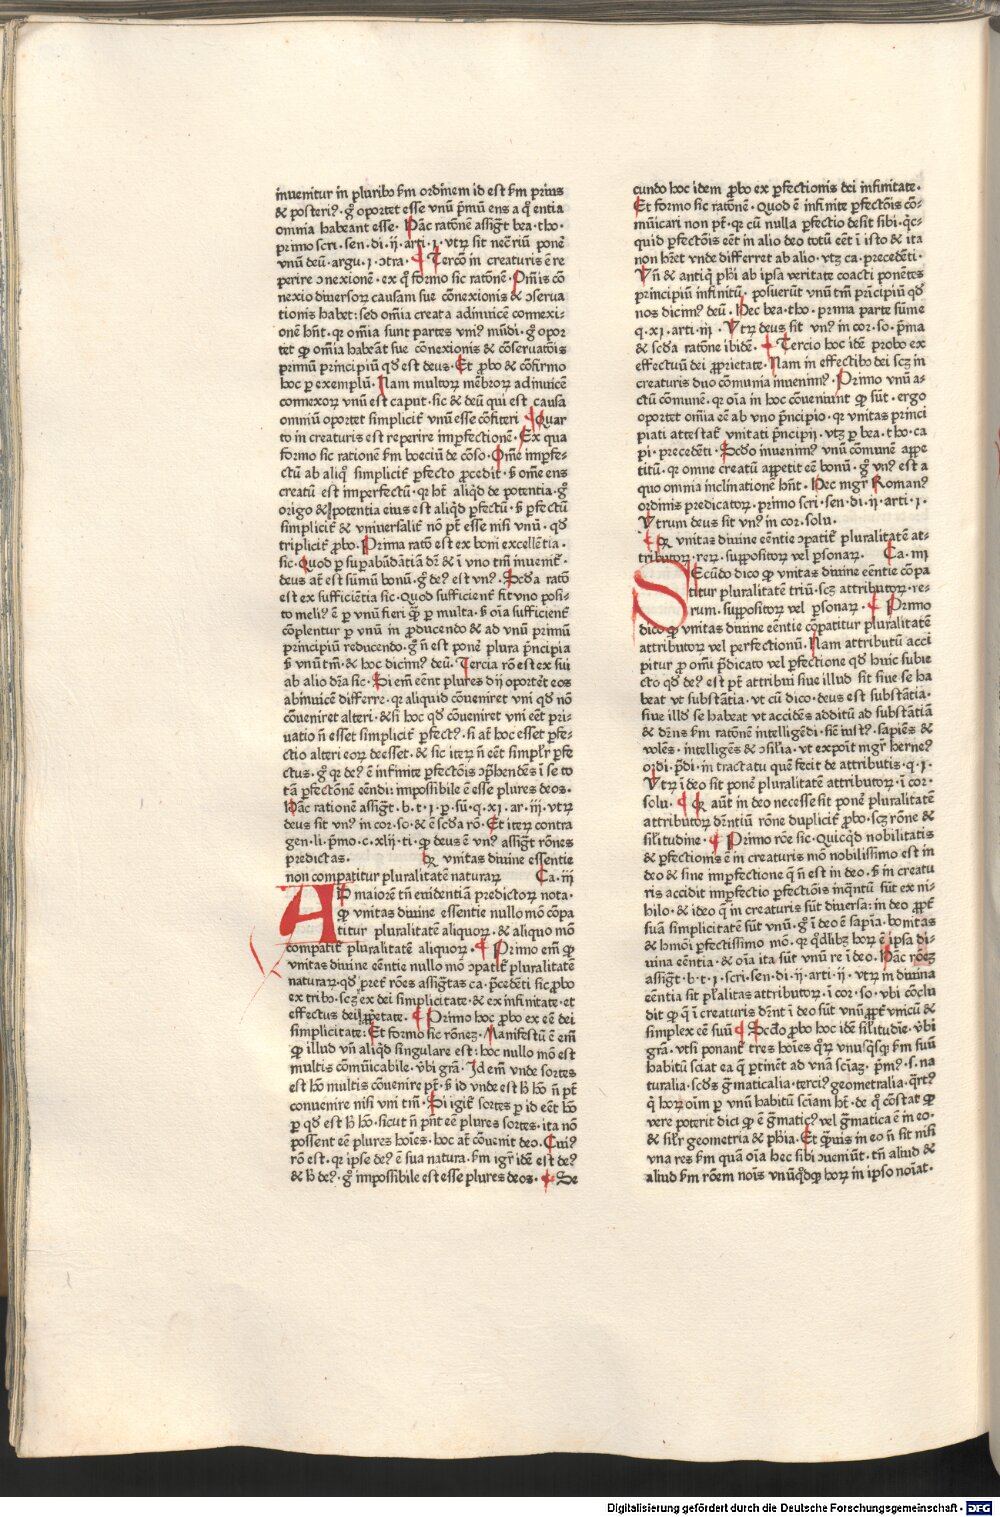 inuenitur in pluribꝰ ẜm ordinem id est ẜm prius
& posteriꝰ· gͦ oportet esse vnū p̄mū ens a qͦ entia
omnia habeant esse· Hāc ratonē assigt̄ bea·tho·
primo scri·sen·di·ij·arti·j·vtꝝ sit nec̄riū ponē
vnū deū·argu·j·ↄtra· ¶ Terco in creaturis ē re
perire ↄnexionē·ex qͦ formo sic ratonē· Om̄is cō
nexio diuersoꝝ causam sue cōnexionis & ↄserua
tionis habet: sed om̄ia creata adinuicē connexi-
onē hn̄t· qꝛ omia sunt partes vniꝰ mūdi· gͦ opor
tet ꝙ om̄ia habeāt sue cōnexionis & cōseruatōis
primū principiū qd̄ est deus· Et ꝓbo & cōfirmo
hoc per exemplū· Nam multoꝝ mēbroꝝ adinuicē
connexoꝝ vnū est caput·sic & deū qui est causa
omniū oportet simplicit̄ vnū esse cōfiteri ¶ Quar
to in creaturis est reperire imꝑfectionē· Ex qua
formo sic rationē ẜm boeciū de cōso· Om̄e imꝑfe-
ctū ab aliqͦ simplicit̄ ꝑfecto ꝓcedit· ẜ om̄e ens
creatū est imperfectū· qꝛ hēt aliqd̄ de potentia· gͦ
origo & potentia eius est aliqd̄ ꝑfectū· ẜ ꝑfectū
simplicit̄ & vniuersalit̄ nō pt̄ esse nisi vnū· qd̄
triplicit̄ ꝓbo· Prima ratō est ex boni excellētia·
sic· Quod ꝑ suꝑabūdātiā dr̄ & ī vno tm̄ inuenit̄·
deus at̄ est sūmū bonū· gͦ deꝰ est vnꝰ· Scd̄a ratō
est ex sufficiētia sic· Quod sufficient̄ fit vno posi-
to meliꝰ ē ꝑ vnū fieri qꝫ̄ ꝑ multa· ẜ oīa sufficient̄
cōplentur ꝑ vnū in ꝓducendo & ad vnū primū
principiū reducendo· gͦ n̄ est ponē plura p̄ncipia
ẜ vnū tm̄· & hoc dicimꝰ deū· Tercia rō est ex sui
ab alio dr̄a sic· Si em̄ eēnt plures dij oportēt eos
abinuicē differre· qꝛ aliquid cōueniret vni qd̄ nō
cōueniret alteri· & si hoc qd̄ cōueniret vni eēt pri-
uatio n̄ esset simplicit̄ ꝑfectꝰ· si at̄ hoc esset ꝑfe-
ctio alteri eoꝝ deesset· & sic iteꝝ n̄ eēt simplr̄ ꝑfe
ctus· gͦ qꝛ deꝰ ē infinite ꝑfectōis ↄp̄hendēs ī se to
tā ꝑfectōnē eēndi: impossibile ē esse plures deos·
Hāc rationē assigt̄·b·t·j·p·sū·q·xj·ar·iij·vtꝝ
deus sit vnꝰ in cor·so·& ē scd̄a rō· Et iteꝝ contra
gen·li·pͥmo·c·xlij·ti·ꝙ deus ē vnꝰ assigt̄ rōnes
predictas· Qꝛ vnitas diuine essentie
non compatitur pluralitatē naturaꝝ Ca·iij
AD maiorē tn̄ euidentiam predictoꝝ nota·
ꝙ vnitas diuine essentie nullo mō cōpa
titur pluralitatē aliquoꝝ·& aliquo mō
compatit̄ pluralitatē aliquoꝝ· ¶ Primo em̄ ꝙ
vnitas diuine eēntie nullo mō ↄpatit̄ pluralitatē
naturaꝝ·qd̄ pͥter rōes assigtas ca·p̄cedēti sic ꝓbo
ex tribꝰ·scꝫ ex dei simplicitate·& ex infinitate·et
effectus dei ꝓpͥetate· ¶ Primo hoc ꝓbo ex eē dei
simplicitate: Et formo sic rōneꝫ· Manifestū ē em̄
ꝙ illud vn̄ aliqd̄ singulare est: hoc nullo mō est
multis cōmūicabile· vͤbi grā· Id em̄ vnde sortes
est hō multis cōuenire pt̄· ẜ id vnde est h̄ hō n̄ pt̄
conuenire nisi vni tm̄· Si igit̄ sortes ꝑ id eēt hō
ꝑ qd̄ est h̄ hō·sicut n̄ pn̄t eē plures sortes·ita nō
possent eē plures hoīes· hoc at̄ cōuenit deo· Cuiꝰ
rō est· qꝛ ipse deꝰ ē sua natura· ẜm igr̄ idē est deꝰ
& h̄ deꝰ· gͦ impossibile est esse plures deos· ¶ Se
cundo hoc idem ꝓbo ex ꝑfectionis dei infinitate·
Et formo sic ratōnē· Quod ē infinite ꝑfectōis cō-
mūicari non pt̄· qꝛ cū nulla ꝑfectio desit sibi·qͥc-
quid ꝑfectōis eēt in alio deo totū eēt ī isto & ita
non hr̄et vnde differret ab alio· vtꝫ ca·precedēti·
Vn̄ & antiqͥ phi ab ipsa veritate coacti ponētes
principiū infinitū· posuerūt vnū tm̄ pͥncipiū qd̄
nos dicimꝰ deū· Hec bea·tho·prima parte sūme
q·xj·arti·iij· Vtꝝ deus sit vnꝰ in cor·so·pͥma
& scd̄a ratōne ibidē· ¶ Tercio hoc idē probo ex
effectuū dei ꝓprietate· Nam in effectibꝰ dei scꝫ in
creaturis duo cōmunia inuenimꝰ· Primo vnū a-
ctū cōmunē· qꝛ oīa in hoc cōueniunt ꝙ sūt· ergo
oportet om̄ia eē ab vno pͥncipio· qꝛ vnitas princi
piati attestat̄ vnitati pͥncipij· vtꝫ ꝑ bea·tho·ca
pi·precedēti· Scd̄o inuenimꝰ vnū cōmunē appe
titū· qꝛ omne creatū appetit eē bonū· gͦ vnꝰ est a
quo omnia inclinationē hn̄t· Hec mgr̄ Romanꝰ
ordinis predicatoꝝ·primo scri·sen·di·ij·arti·j·
Vtrum deus sit vnꝰ in cor·solu·
¶ Qꝛ vnitas diuine eēntie ↄpatit̄ pluralitatē at-
tributoꝝ·reꝝ·suppositoꝝ vel ꝑsonaꝝ· Ca·iiij
SEcūdo dico ꝙ vnitas diuine eēntie cōpa
titur pluralitatē triū·scꝫ attributoꝝ·re-
rum·suppositoꝝ vel ꝑsonaꝝ· ¶ Primo
dico ꝙ vnitas diuine eēntie cōpatitur pluralitatē
attributoꝝ vel perfectionū· Nam attributū acci
pitur ꝓ omī p̄dicato vel ꝑfectione qd̄ huic subie
cto qd̄ deꝰ est pt̄ attribui siue illud sit siue se ha
beat vt substātia·vt cū dico·deus est substātia·
siue illd̄ se habeat vt accidēs additū ad substātiā
& dr̄ns ẜm ratōnē intelligēdi·sic̄ iustꝰ·sapiēs &
volēs·intelligēs & ↄsīlia·vt expoit mgr̄ herneꝰ
ordi·p̄di·in tractatu quē fecit de attributis·q·j·
Vtꝝ ī deo sit ponē pluralitatē attributoꝝ·ī cor·
solu· ¶ Qꝛ aūt in deo necesse sit ponē pluralitatē
attributoꝝ dēntiū rōne duplicit̄ ꝓbo·scꝫ rōne &
sīlitudine· ¶ Primo rōe sic· Quicqd̄ nobilitatis
& ꝑfectionis ē in creaturis mō nobilissimo est in
deo & sine imꝑfectione q̄ n̄ est in deo· ẜ in creatu
ris accidit imꝑfectio ꝑfectiōis inqͣntū sūt ex ni-
hilo·& ideo q̄ in creaturis sūt diuersa: in deo ꝓpt̄
suā simplicitatē sūt vnū· gͦ ī deo ē sapīa·bonitas
& hmōi ꝑfectissimo mō·qꝛ qd̄libꝫ hoꝝ ē ipsa di-
uina eēntia·& oīa ita sūt vnū re ī deo· Hāc rōeꝫ
assigt̄·b·t·j·scri·sen·di·ij·arti·ij·vtꝝ in diuina
eēntia sit pl̄ralitas attributoꝝ·ī cor·so·vbi cōclu
dit ꝙ q̄ ī creaturis dr̄nt ī deo sūt vnū ꝓpt̄ vnicū &
simplex eē suū ¶ Scd̄o ꝓbo hoc idē sīlitudīe·vͤbi
grā·vtsi ponant̄ tres hoīes qͦꝝ vnusqͥsqꝫ ẜm suū
habitū sciat ea q̄ ꝑtinēt ad vnā sciāꝫ·pͥmꝰ·s·na
turalia·scd̄s gͣmaticalia·terciꝰ geometralia·qͣrtꝰ
qͥ hoꝝ oīm ꝑ vnū habitū sciam hēt·de qͦ cōstat ꝙ
vere poterit dici ꝙ ē gͣmaticꝰ vel gͣmatica ē in eo·
& silr̄ geometria & phīa· Et qͣꝫuis in eo n̄ sit nisi
vna res ẜm quā oīa hec sibi ↄueniūt·tn̄ aliud &
aliud ẜm rōem noīs vnūqd̄qꝫ hoꝝ in ipso noīat·
Digitalisierung gefördert durch die Deutsche Forschungsgemeinschaft - DFG